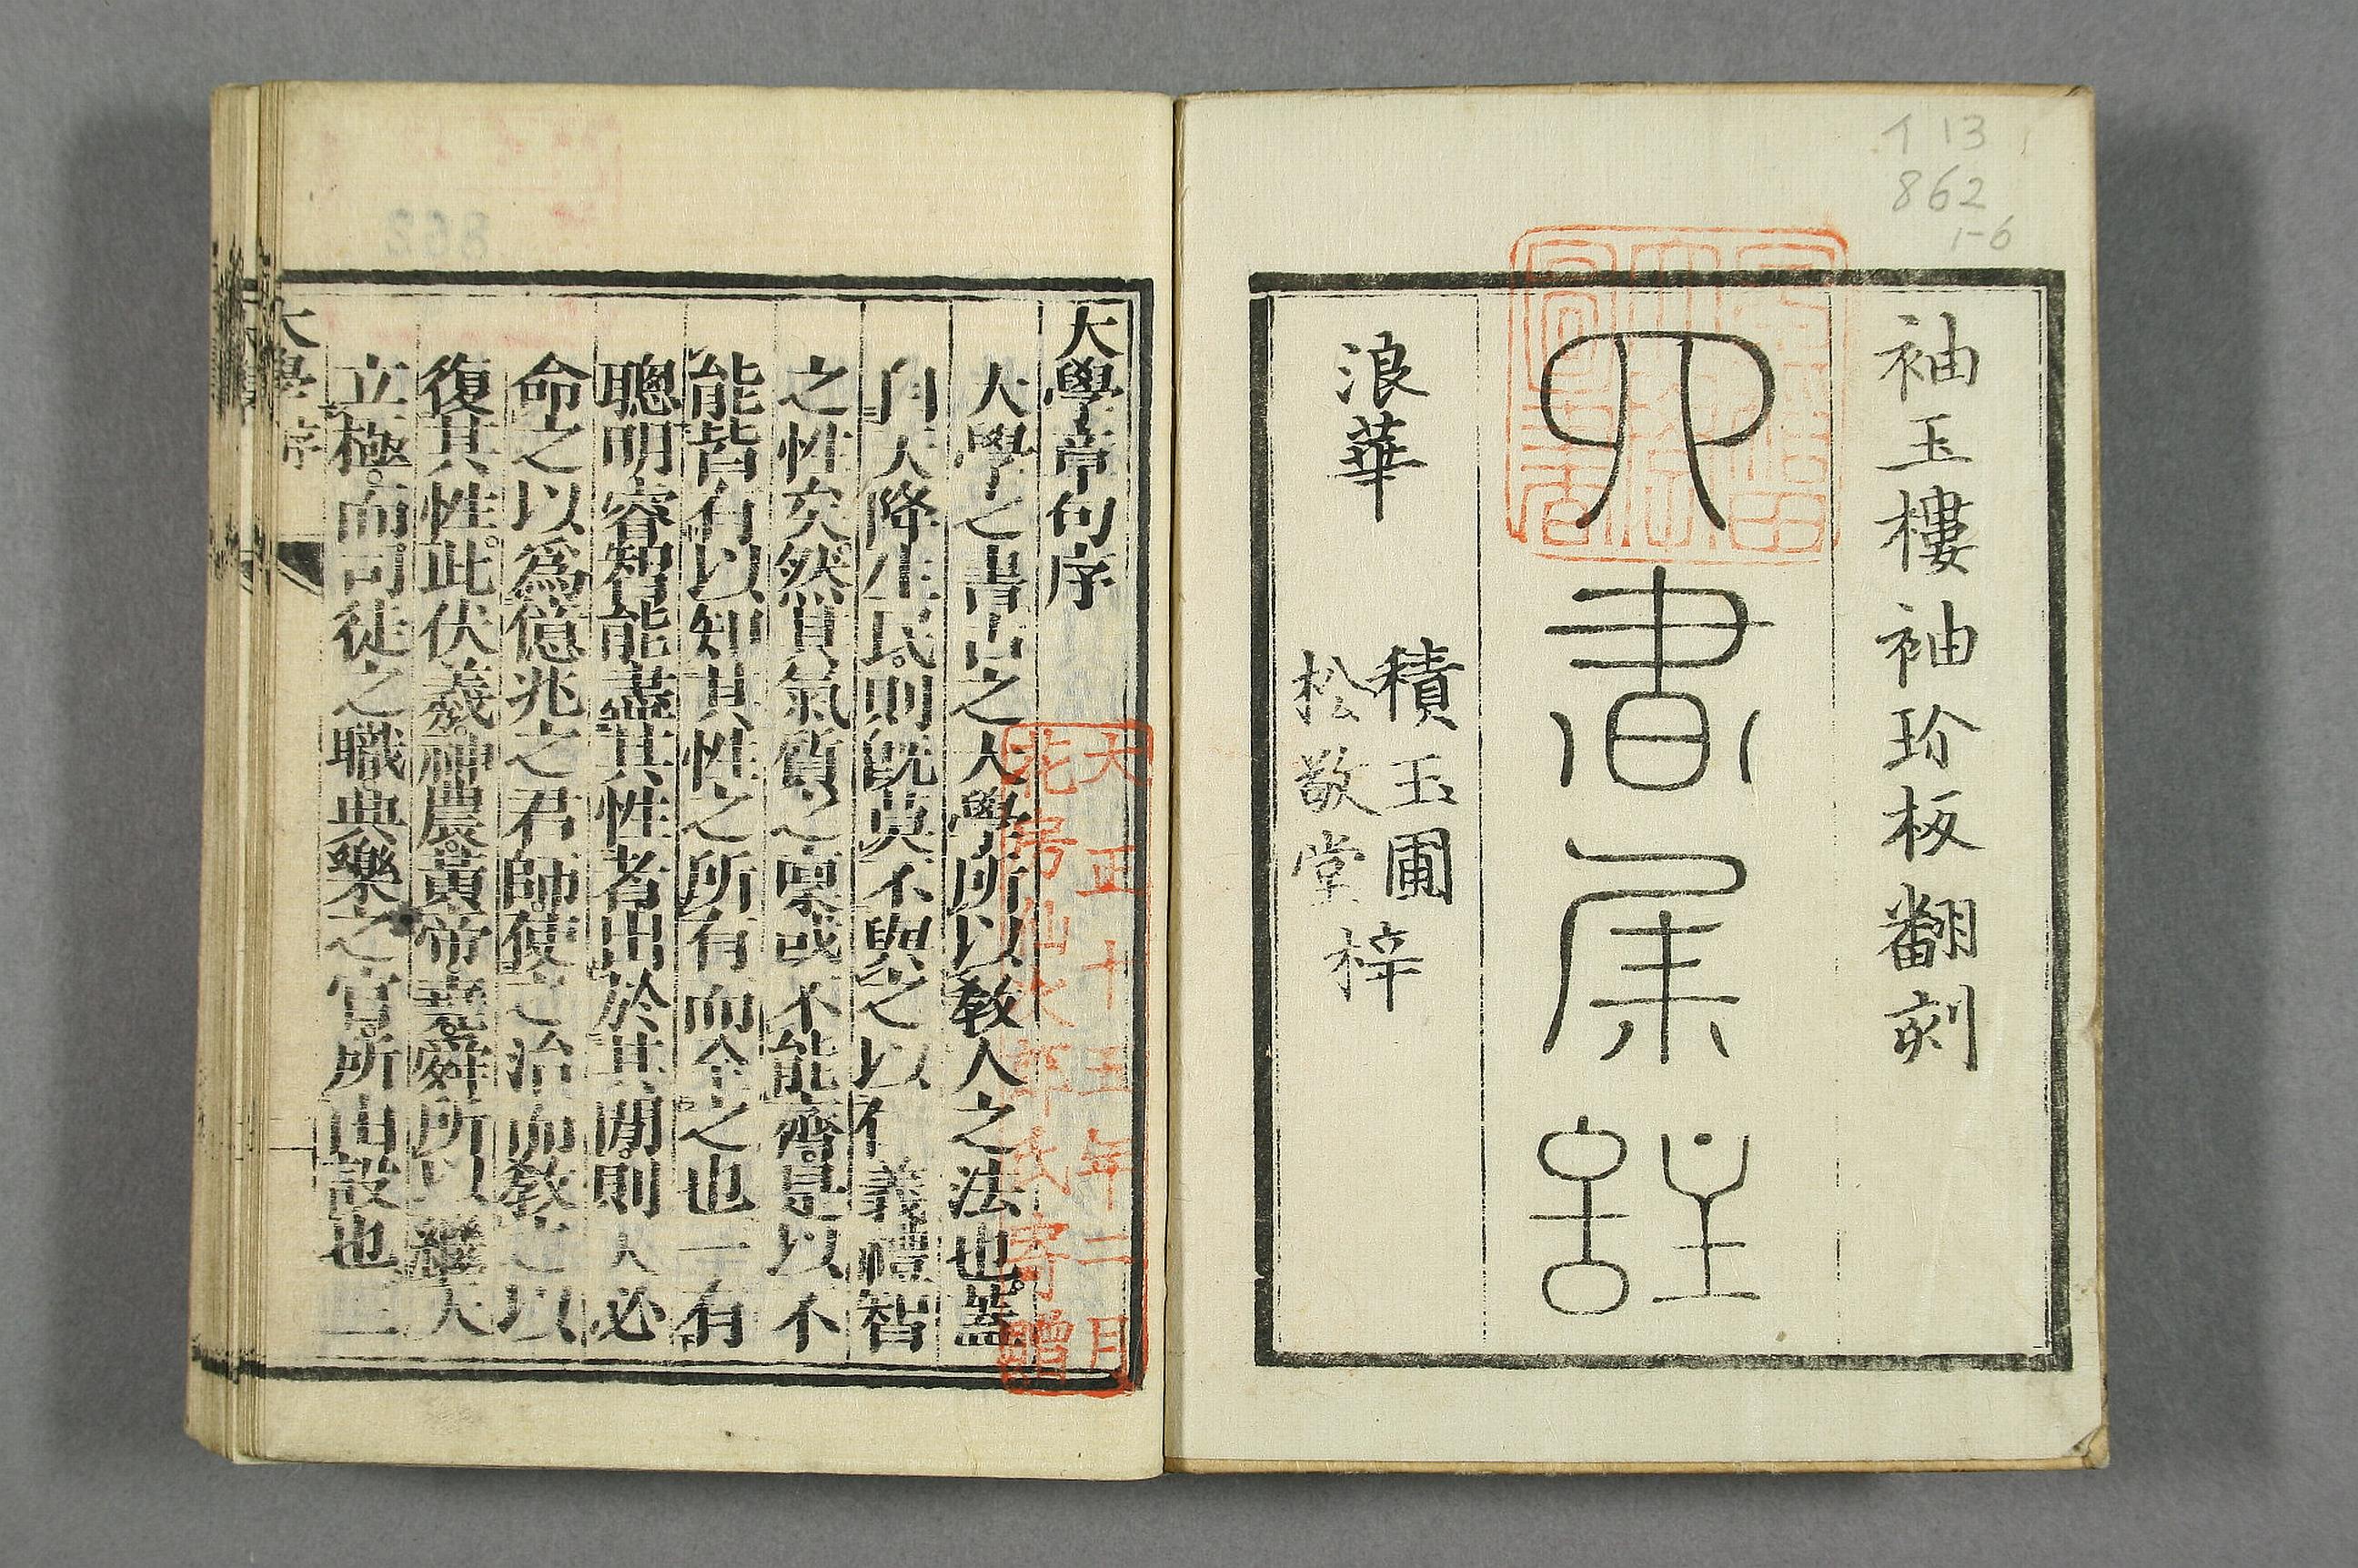 イ13
862
1-6
袖玉樓袖珍板翻刻
四書集註
浪華
積玉圃
松敬堂
梓
大學章句序
大學之書古之大學所以敎人之法也。蓋
自天降生民。則旣莫不與之以仁義禮智
之性矣。然其氣質之稟或不能齊。是以不
能皆有以知其性之所有而全之也一有
聰明睿智能盡其性者出於其閒。則天必
命之以爲億兆之君師。使之治而敎之以
復其性。此伏羲。神農。黃帝。堯。舜。所以繼天
立極。而司徒之職。典樂之官。所由設也三
大學序
大正十三年二月
花房仙次郎氏寄贈